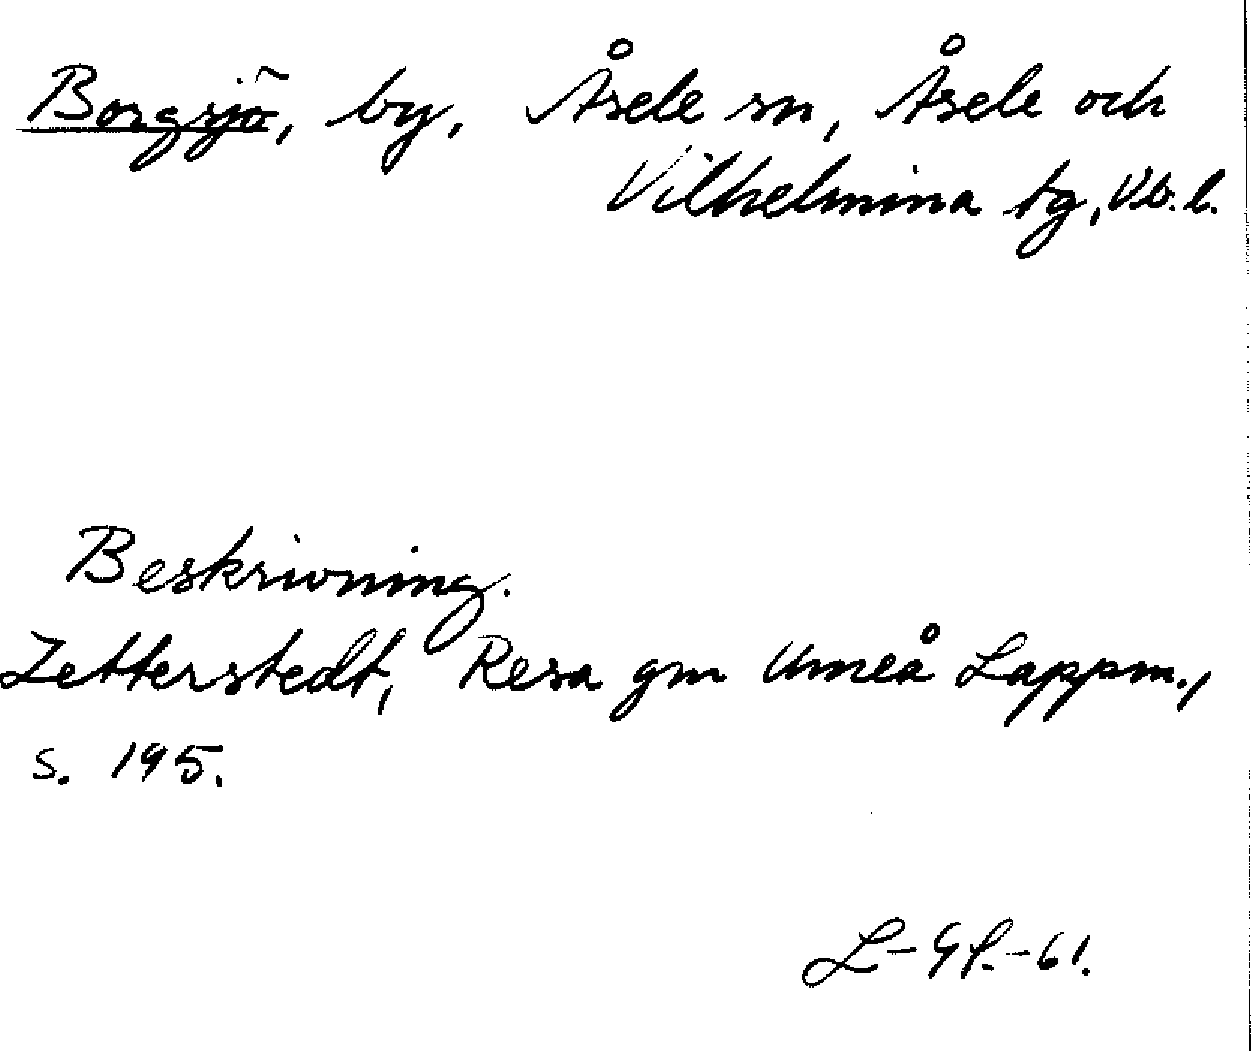 Borgsjö, by, Åsele sn, Åsele och
Vilhelmina tg, Vb. l.
Beskrivning.
Zetterstedt, Resa gm Umeå Lappm.,
s. 195.
L-Gl.-61.